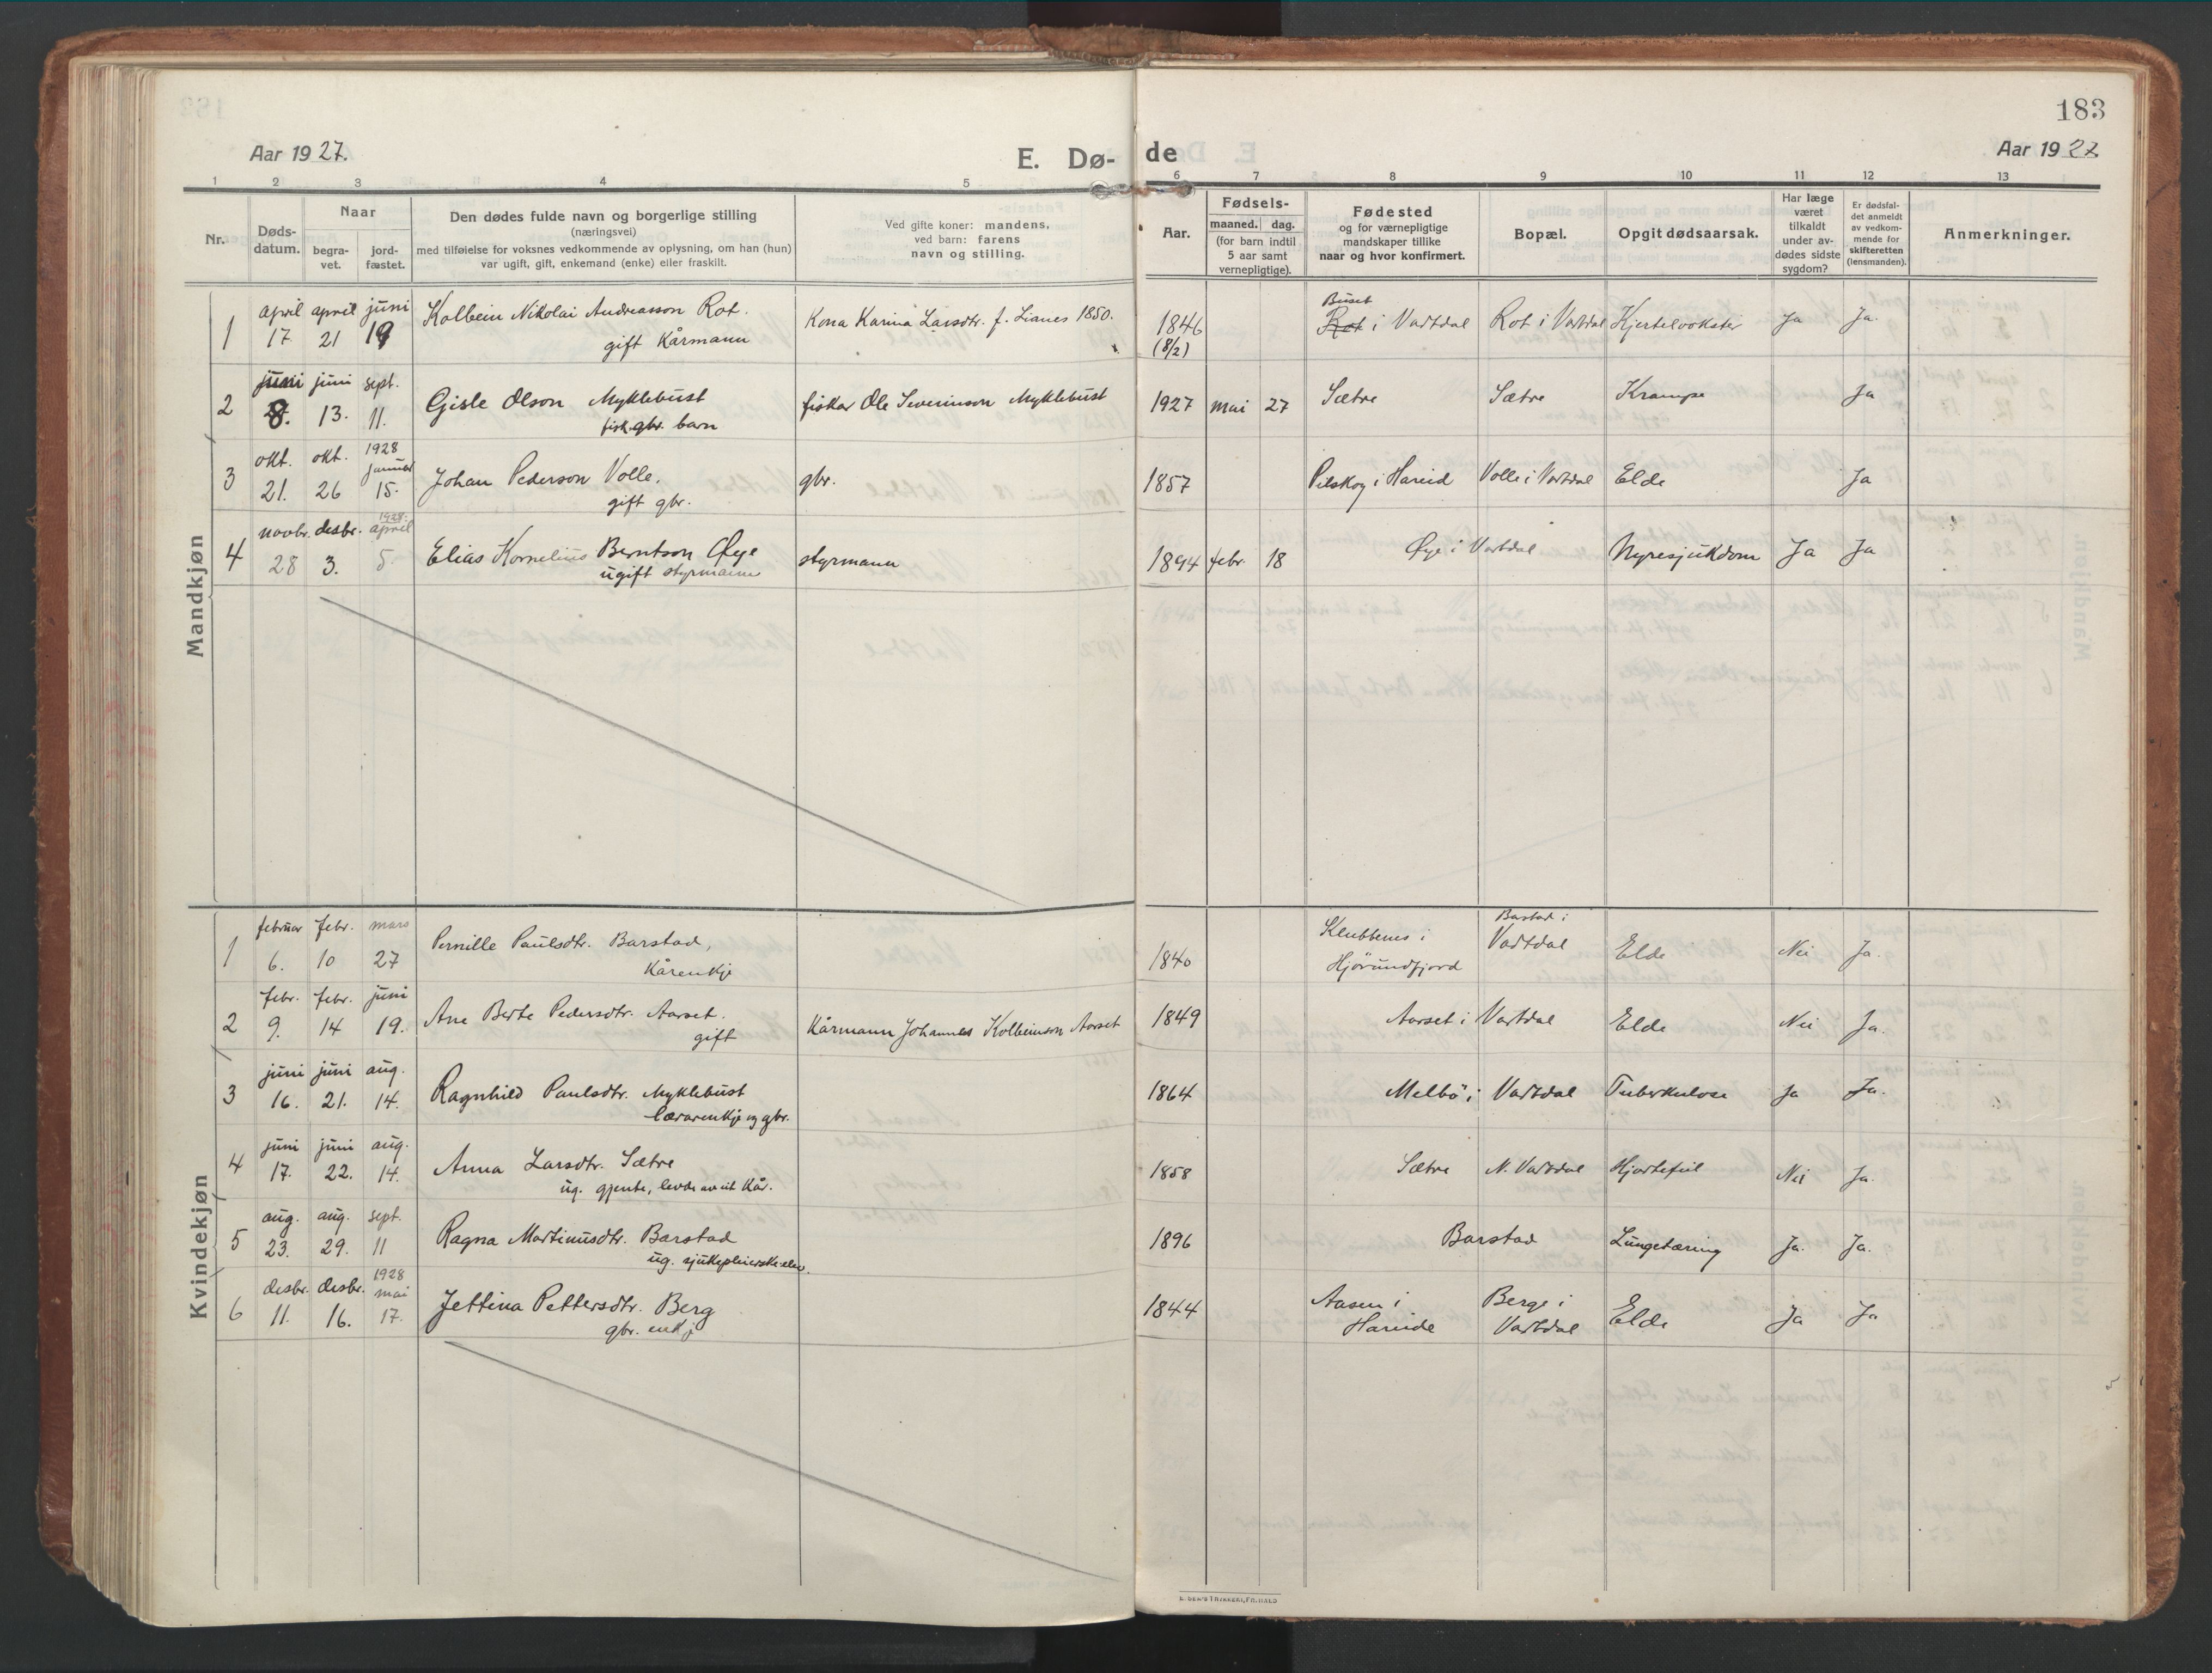 183
Aar 1927.
E. Dø-
de
Aar 1927
1 2 3 4 5 6 7 8 9 10 11 12 13
Nr.
Døds-
datum.
Naar
begra-
vet.
jord-
fæstet.
Den dødes fulde navn og borgerlige stilling
(næringsvei)
med tilføielse for voksnes vedkommende av oplysning, om han (hun)
var ugift, gift, enkemand (enke) eller fraskilt.
Ved gifte koner: mandens,
ved barn: farens
navn og stilling.
Aar.
Fødsels-
maaned. dag.
(for barn indtil
5 aar samt
vernepligtige).
Fødested
og for værnepligtige
mandskaper tillike
naar og hvor konfirmert.
Bopæl.
Opgit dødsaarsak.
Har læge
været
tilkaldt
under av-
dødes sidste
sygdom?
Er dødsfal-
det anmeldt
av vedkom-
mende for
skifteretten
(lensmanden).
Anmerkninger.
Mandkjøn
april april juni
1 17 21 19
Kolbein Nikolai Andreasson Rot.
gift Kårmann
Kona Karina Larsdtr. f. Lianes 1850.
1846
(8/2)
Buset
Rot i Vartdal
Rot i Vartdal
Ja Ja.
juni juni sept.
2 8. 13. 11.
Gisle Olson Myklebust
fisk. gbr. barn
fiskar Ole Severinson Myklebust
1927 mai 27 Sætre Sætre Krampe Ja
1928
okt. okt. januar
3 21. 26 15.
Johan Pederson Volle.
gift gbr.
gbr.
1857 Pilskog i Hareid Volle i Vartdal Elde Ja
1928.
novbr. desbr. april
4 28 3. 5.
Elias Kornelius Berntson Øye
ugift styrmann
styrmann
1894 febr. 18 Øye i Vartdal Nyresjukdom Ja Ja
Kvindekjøn
februar febr. mars
1 6. 10 27
Pernille Paulsdtr. Barstad,
Kårenkje
1840
Klubbenes i
Hjörundfjord
Barstad i
Vartdal
Elde Nei Ja.
febr. febr. juni
2 9. 14 19.
Ane Berte Pedersdtr. Aarset.
gift
Kårmann Johannes Kolbeinson Aarset
1849 Aarset i Vartdal Elde Nei Ja.
juni juni aug.
3 16. 21. 14.
Ragnhild Paulsdtr. Myklebust
lærarenkje og gbr.
1864 Melbö i Vartdal Tuberkulose Ja Ja.
juni juni aug.
4 17. 22. 14.
Anna Larsdtr. Sætre
ug. gjente, levde av eit Kår.
1858 Sætre N. Vartdal Hjartefeil Nei Ja.
aug. aug. sept.
5 23. 29. 11
Ragna Martinusdtr. Barstad
ug. sjukepleierske-elev.
1896 Barstad Lungetæring Ja. Ja.
1928
desbr. desbr. mai
6 11. 16. 17.
Jettina Pettersdtr. Berg
gbr. enkj
1844
Aasen i
Hareide
Berge i
Vartdal
Elde Ja Ja